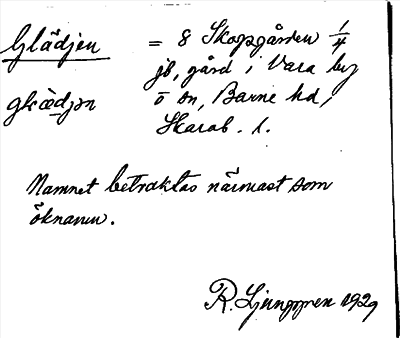 Glädjen = 8 Skopsgården 1/4
jb, gård i Vara by
glædjən ö sn, Barne hd,
Skarab. l.
Namnet betraktas närmast som
öknamn.
R. Ljunggren 1929